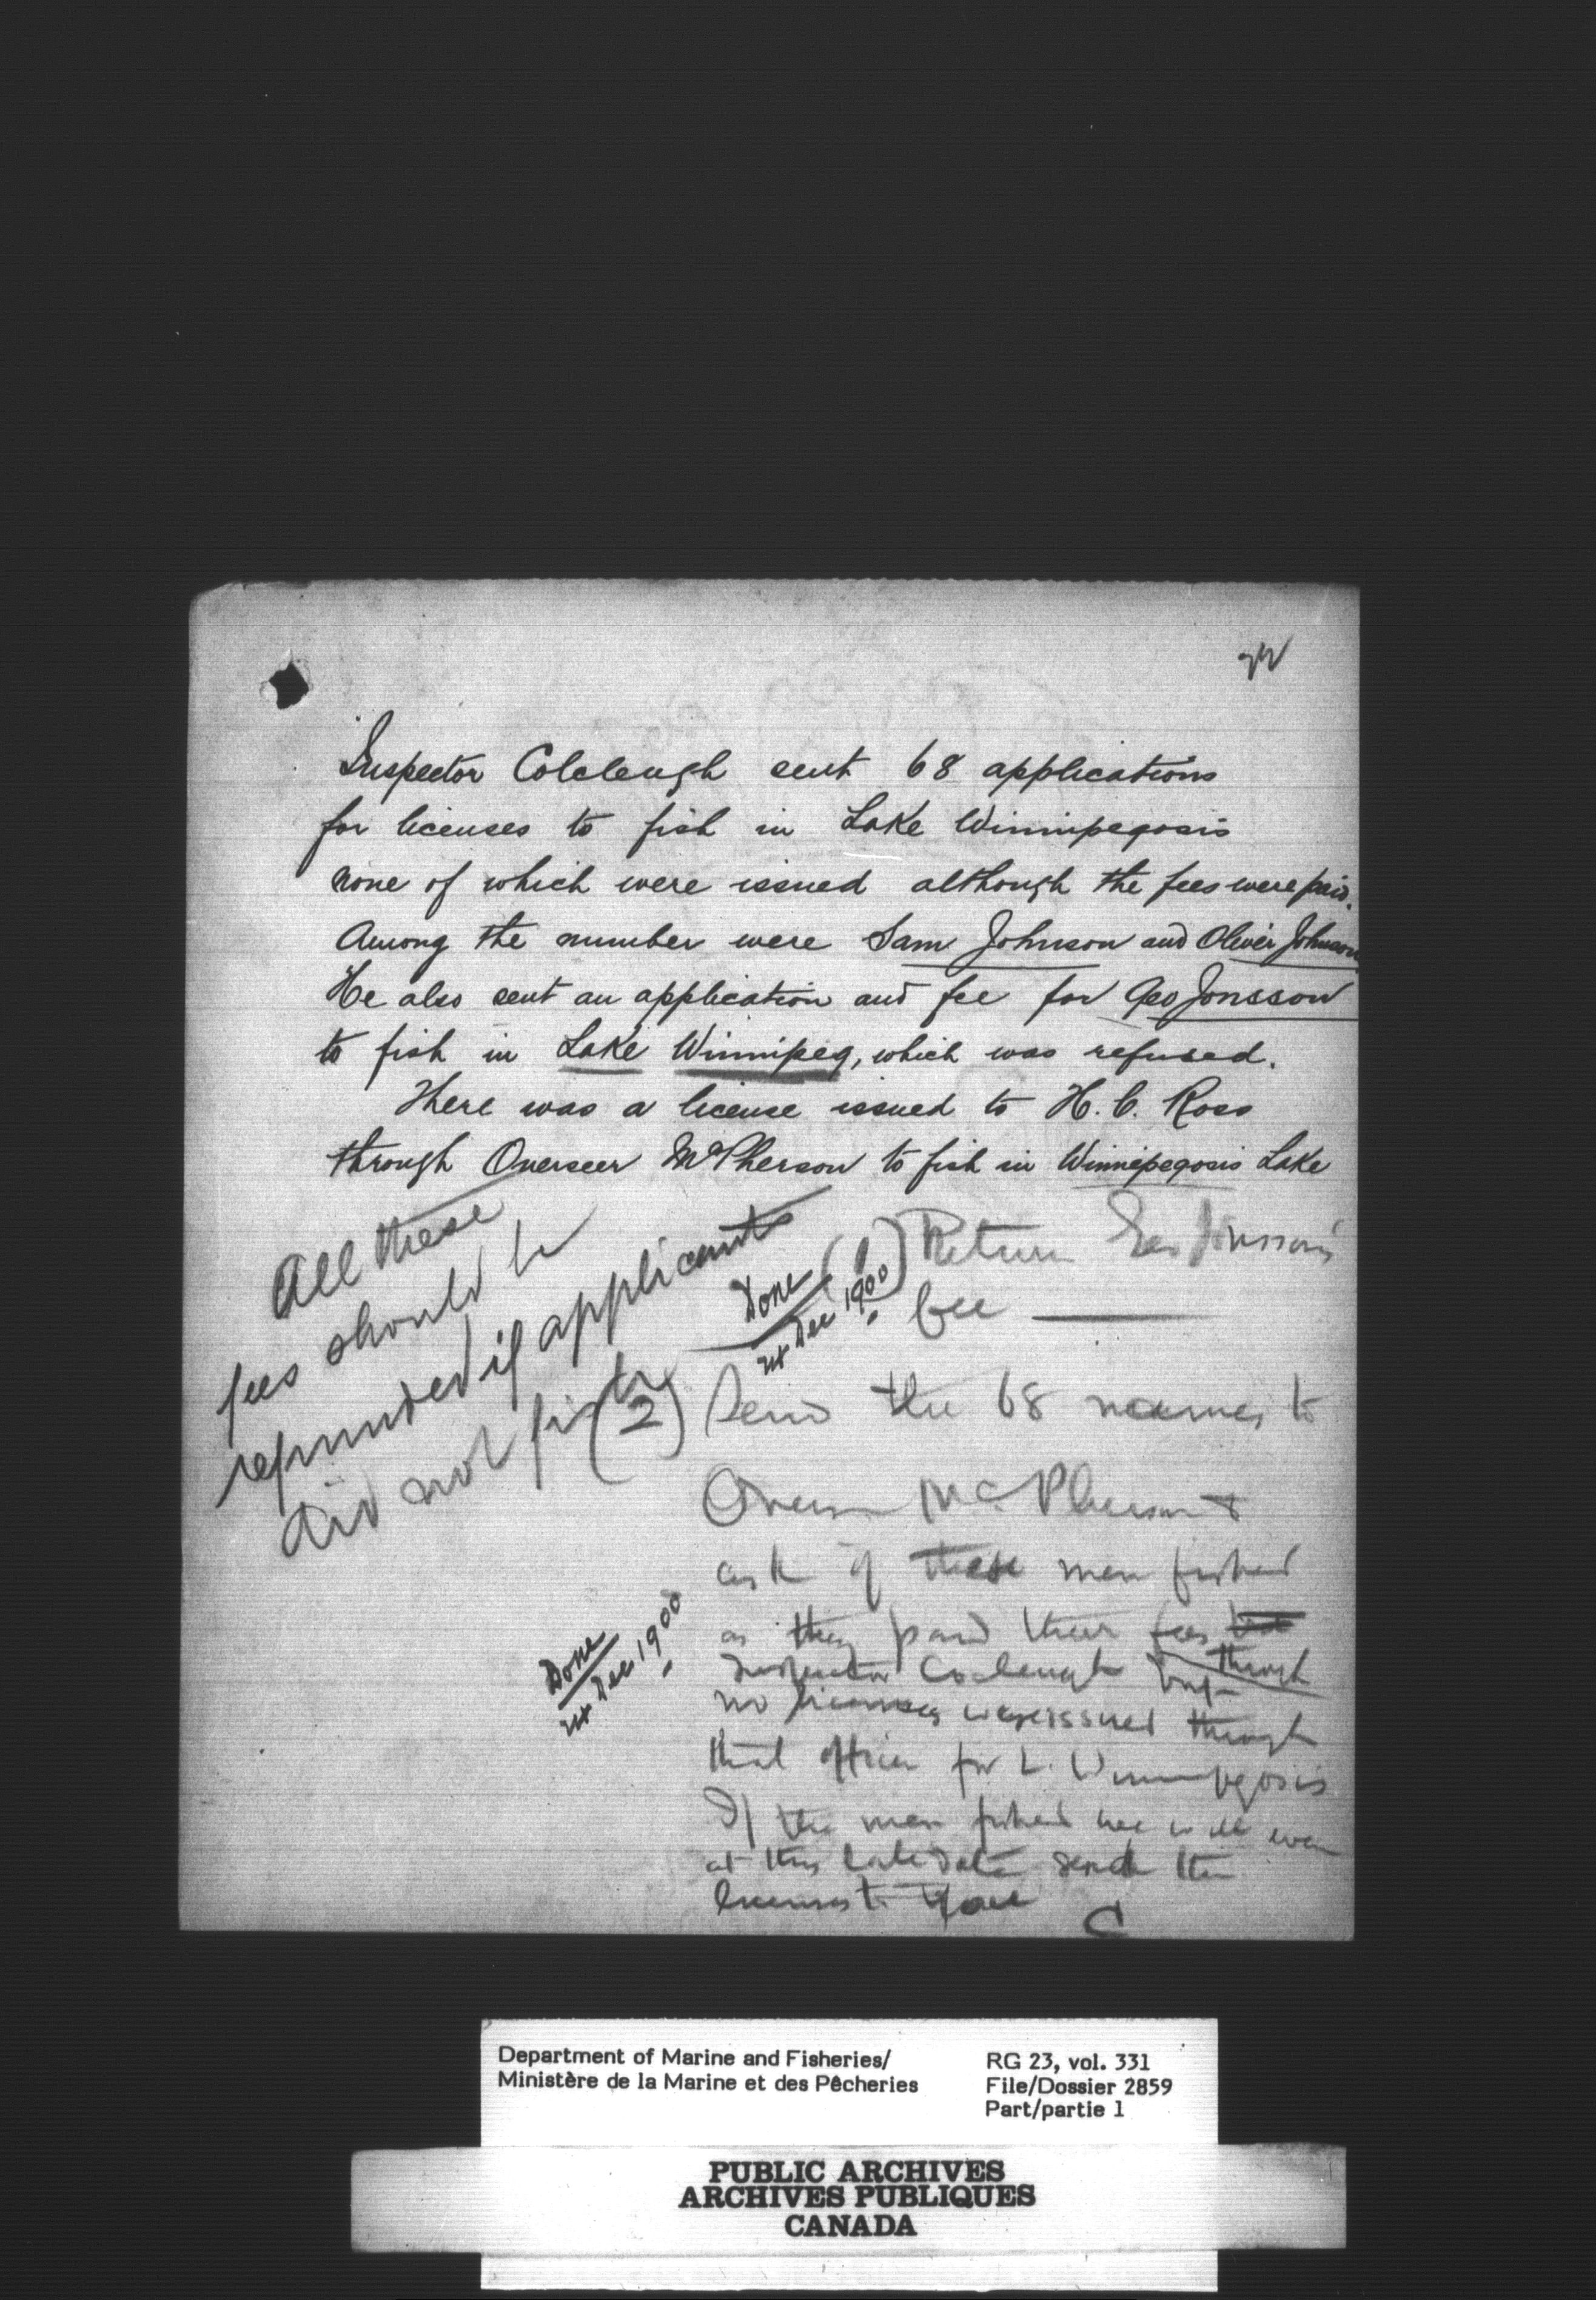 Inspector Colcleugh sent 68 applications
for licenses to fish in Lake Winnipegosis
none of which were issued although the fees were paid.
Among the number were Sam Johnson and Oliver Johnson.
He also sent an application and fee for Geo Jonsson
to fish in Lake Winnipeg, which was refused.
There was a license issued to H. C. Ross
through Overseer McPherson to fish in Winnipegosis Lake
All these
fees should be
refunded if applicants
did not fish
(1) Return Geo Jonsson's
fee
Done
24 Dec 1900
(2) Send the 68 names to
Overseer McPherson &
ask if these men fished
as they paid their fees
through
Inspector Coleleugh but
no licenses were issued through
that officer for L. Winnipegosis
If the men fished we will even
at this late date send the
licenses to you
C
Done
24 Dec 1900
Department of Marine and Fisheries/
Ministère de la Marine et des Pêcheries
RG 23, vol. 331
File/Dossier 2859
Part/partie 1
PUBLIC ARCHIVES
ARCHIVES PUBLIQUES
CANADA